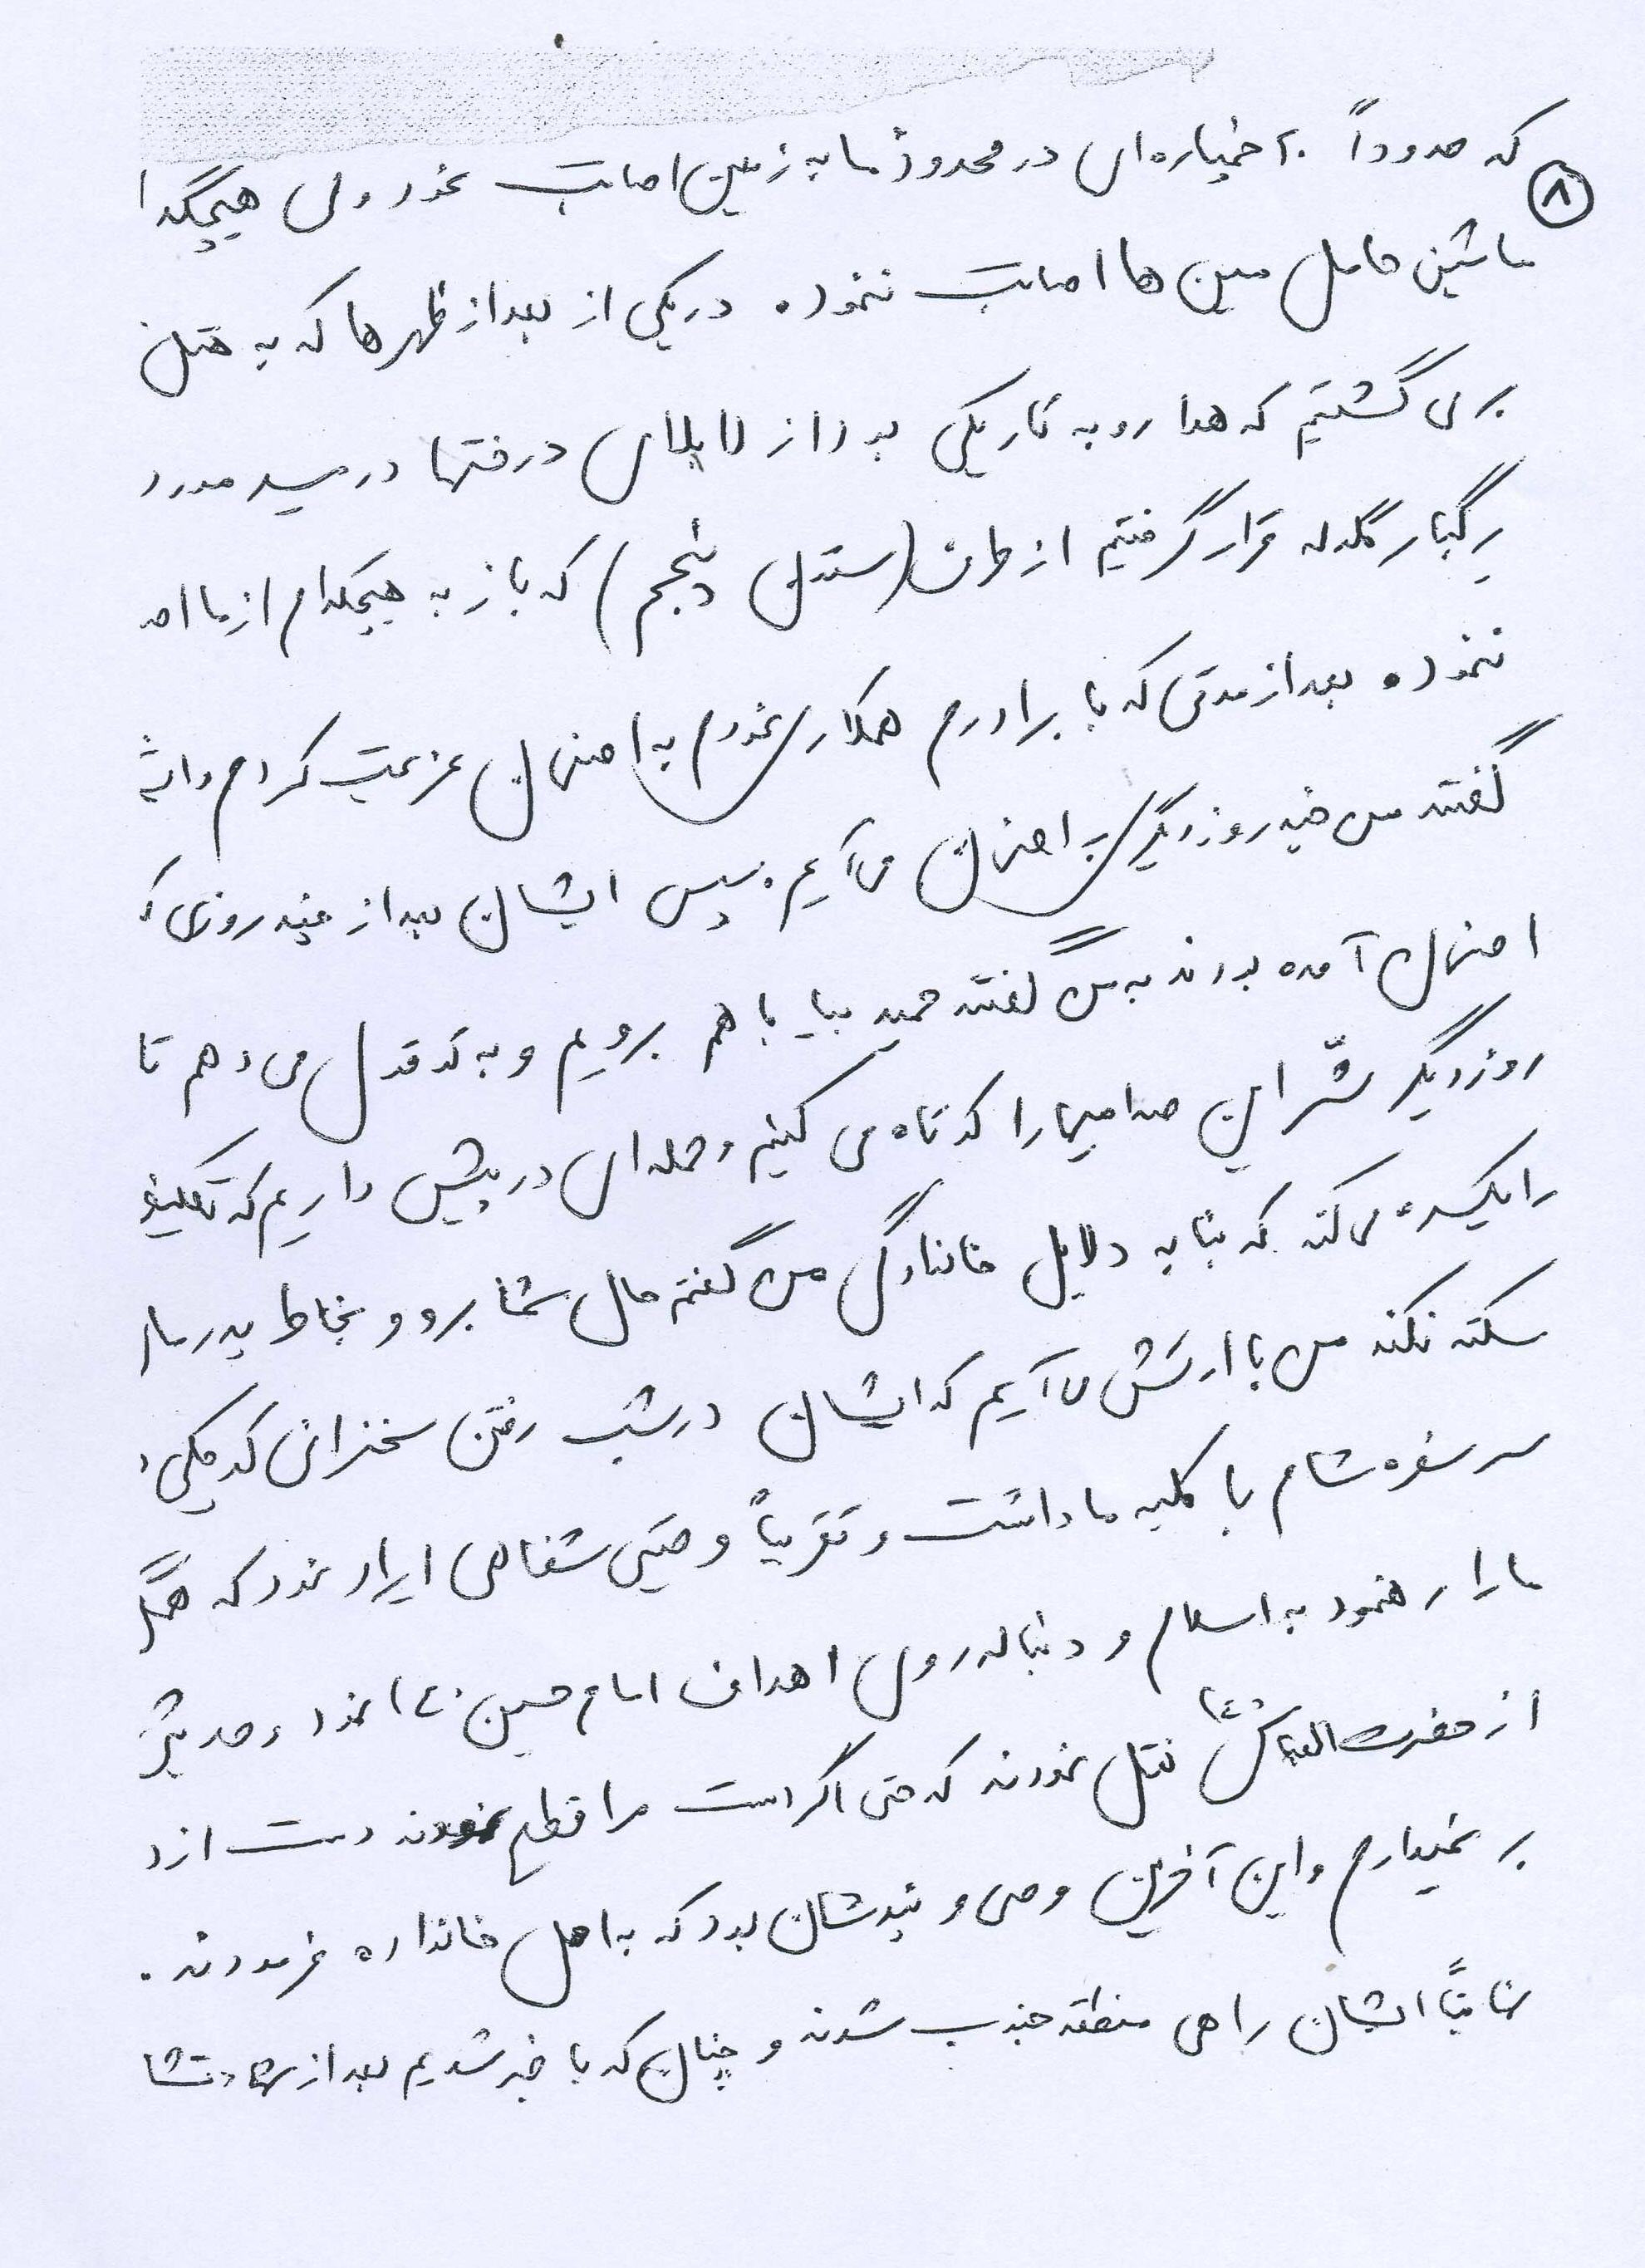 که حدوداً ۲۰ خمپاره‌ای در محدوده ما به زمین اصابت نمود ولی هیچکدا
۸
ماشین حامل مین ها اصابت ننموده در یکی از بعد از ظهرها که به هتل
برمی گشتیم که هوا رو به تاریکی بود از لابلای درختها در مسیر مورد
رگبار گلوله قرار گرفتیم از طرف (ستون پنجم) که باز به هیچکدام از ما اصا
ننموده بعد از مدتی که با برادرم همکاری نمودم به اصفهان عزیمت کردم و ایش
گفتند من چند روز دیگر به اصفهان می‌آیم. سپس ایشان بعد از چند روزی که
اصفهان آمده بودند به من گفتند حمید بیا با هم برویم و به تو قول می‌دهم تا
روز دیگر شّر این صدامیها را کوتاه می کنیم و حمله‌ای در پیش داریم که تکلیف
را یکسره می کند که بنا به دلایل خانوادگی من گفتم حال شما برو و بخاطر پدرمان
سکته نکند من با ارتش می‌آیم که ایشان در شب رفتن سخنرانی کوچکی
سر سفره شام با کلیه ما داشت و تقریباً وصیتی شفاهی ایراد نمود که همگی
ما را رهنمود به اسلام و دنباله روی اهداف امام حسین (ع) نمود و حدیثی
از حضرت ابوالفضل (ع) نقل نمودند که حتی اگر دست مرا قطع نمودند دست از د
بر نمیدارم و این آخرین وصی و پندشان بود که به اهل خانواده فرمودند.
نهایتاً ایشان راهی منطقه جنوب شدند و چنان که با خبر شدیم بعد از شهادتشا